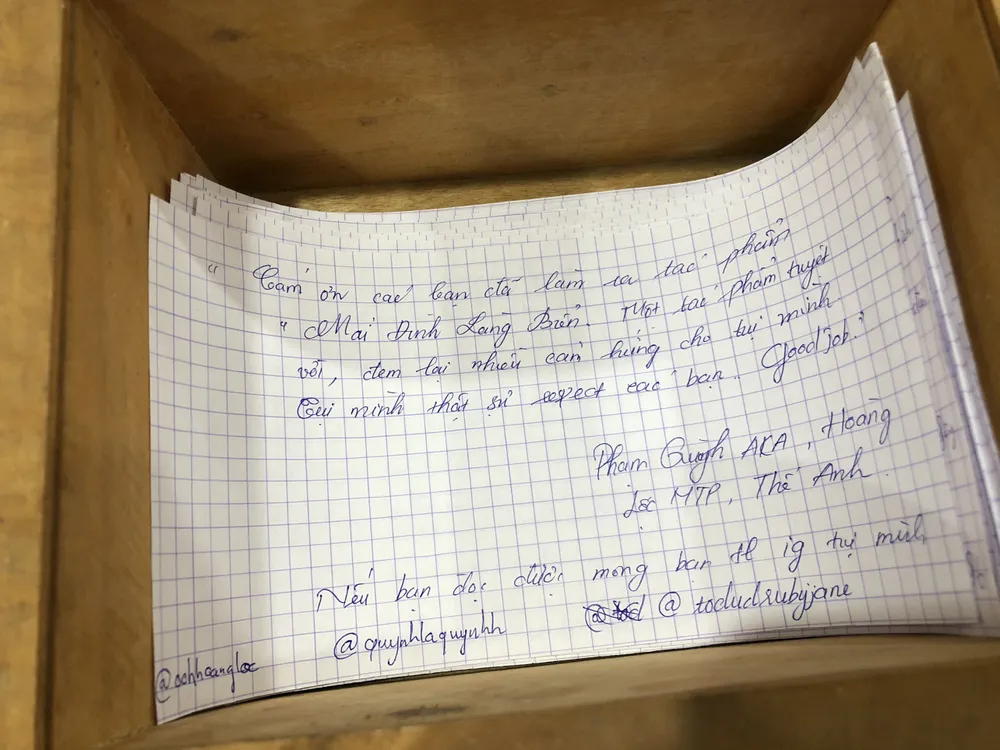 " Cám ơn các bạn đã làm ra tác phẩm
" Mái Đình Làng Biển. Một tác phẩm tuyệt
vời, đem lại nhiều cảm hứng cho tụi mình
Tụi mình thật sự respect các bạn. Good job!
Phạm Quỳnh AKA, Hoàng
Lộc MTP, Thế Anh.
Nếu bạn đọc được mong bạn tl ig tụi mình
@quynhlaquynhh @tocludrubyjane
@ochhoangloc